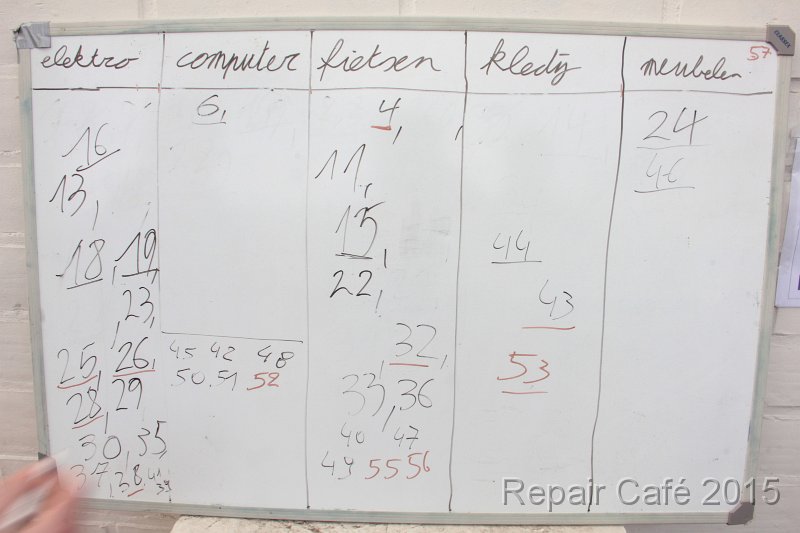 elektro computer fietsen kledij meubelen 57
6, 4,
16 24
13, 11, 46
15,
18, 19, 44
22,
23, 43
32,
25, 26, 45 42 48 53
28, 29 50.51 52 33, 36
30, 35 40 47
37, 38, 41 49 55 56
39
Repair Café 2015